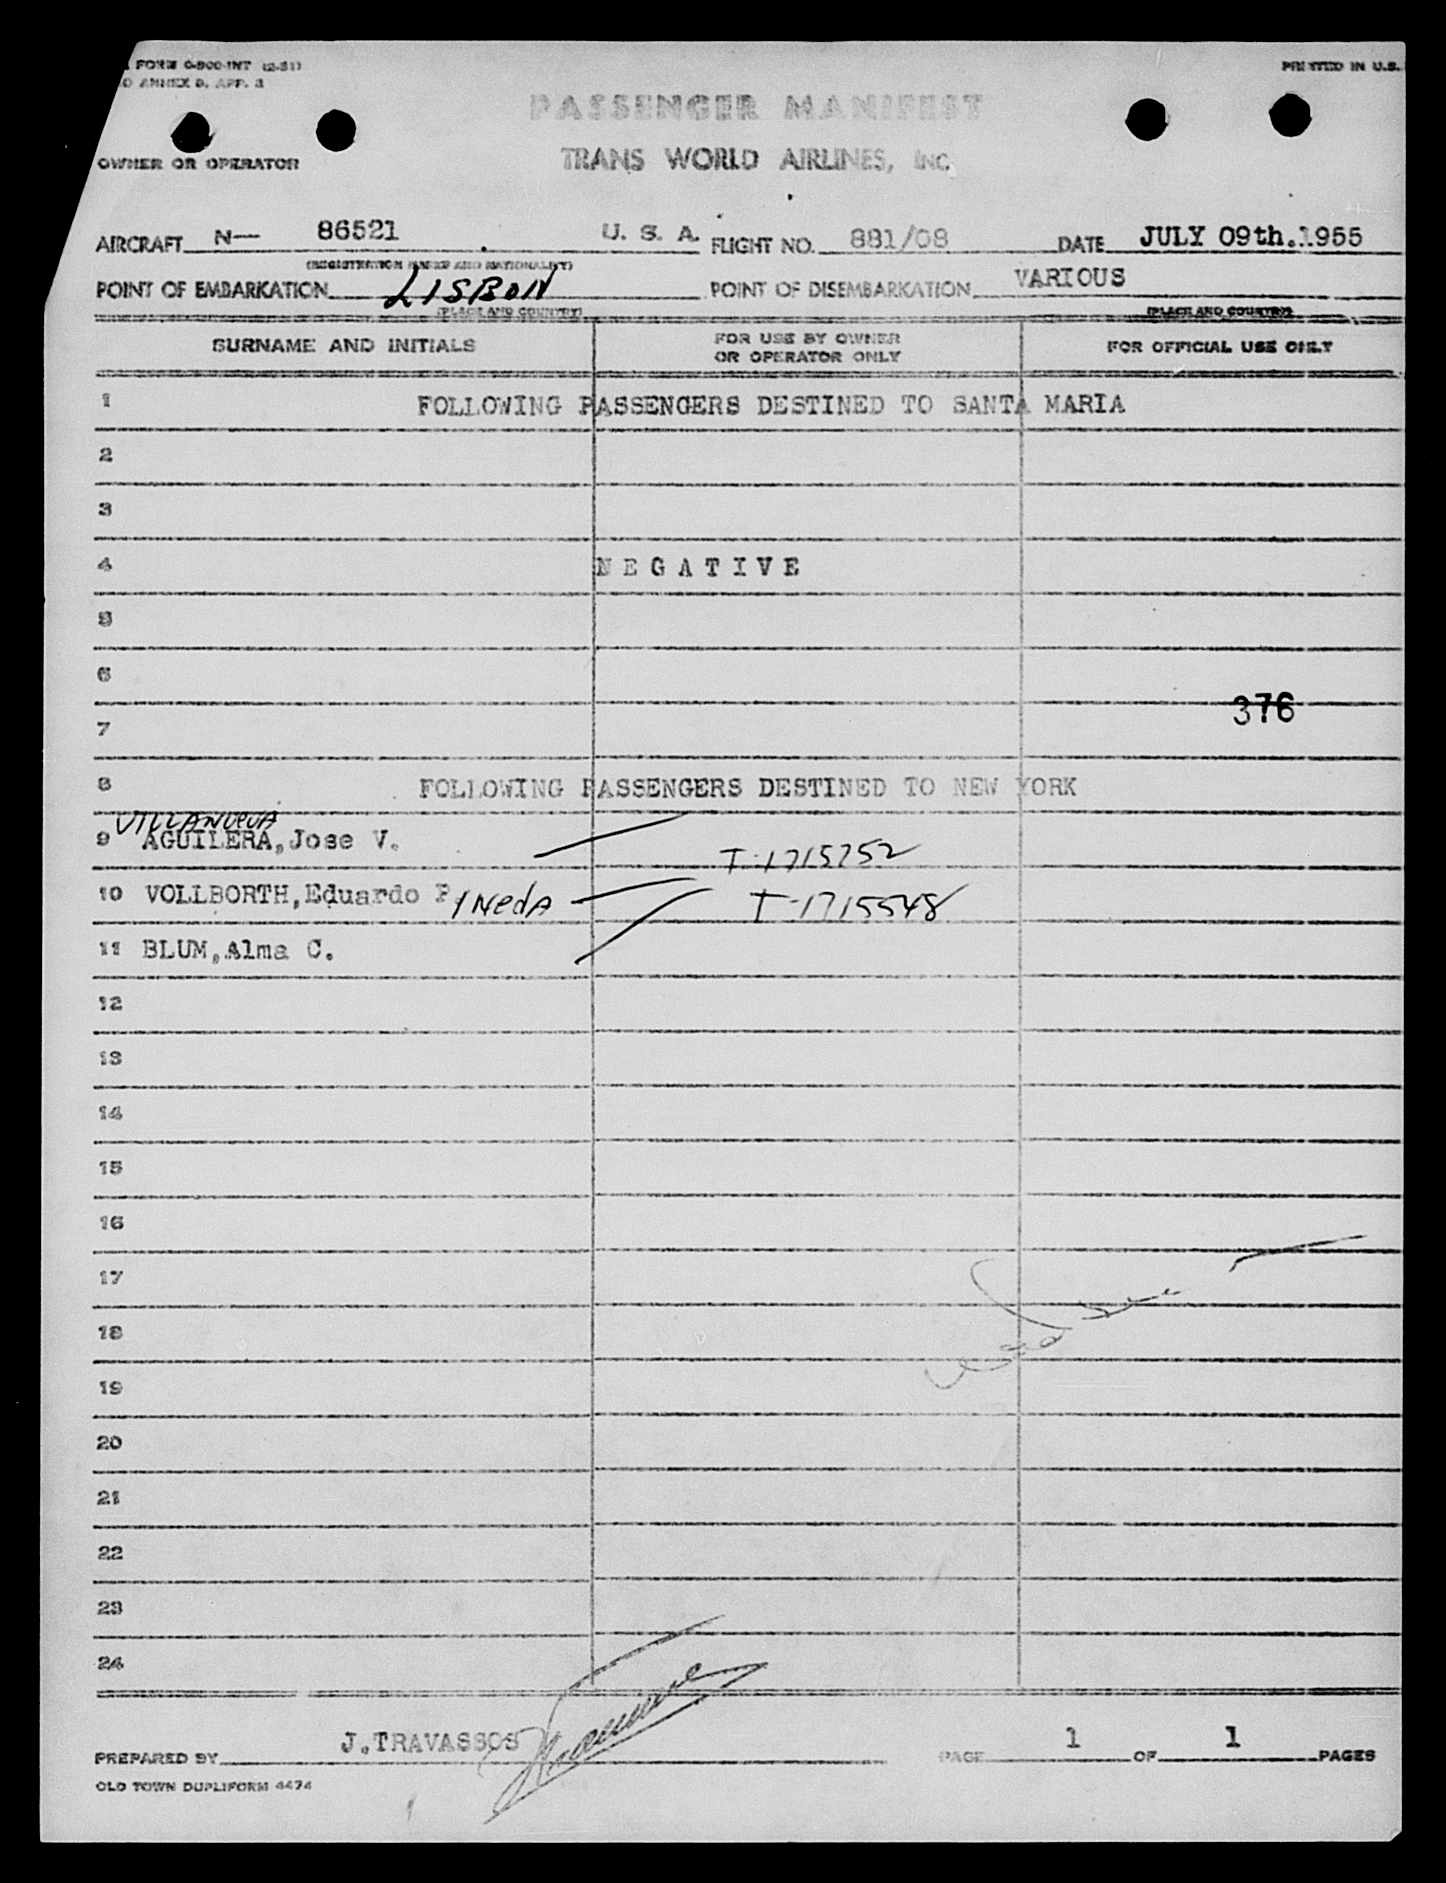 FORM 0-800-INT (2-51)
O ANNEX 9, APP. 3
PRINTED IN U.S.
PASSENGER MANIFEST
OWNER OR OPERATOR
TRANS WORLD AIRLINES, INC.
AIRCRAFT N— 86521 U. S. A. FLIGHT NO. 881/08 DATE JULY 09th.1955
(REGISTRATION MARKS AND NATIONALITY)
POINT OF EMBARKATION LISBON POINT OF DISEMBARKATION VARIOUS
(PLACE AND COUNTRY) (PLACE AND COUNTRY)
SURNAME AND INITIALS FOR USE BY OWNER OR OPERATOR ONLY FOR OFFICIAL USE ONLY
1 FOLLOWING PASSENGERS DESTINED TO SANTA MARIA
2
3
4 N E G A T I V E
5
6
376
7
8 FOLLOWING PASSENGERS DESTINED TO NEW YORK
VILLANUEVA
9 AGUILERA, Jose V. T-1715752
10 VOLLBORTH, Eduardo P. INedA T-1715548
11 BLUM, Alma C.
12
13
14
15
16
17
18
19
20
21
22
23
24
PREPARED BY J.TRAVASSOS PAGE 1 OF 1 PAGES
OLD TOWN DUPLIFORM 4474